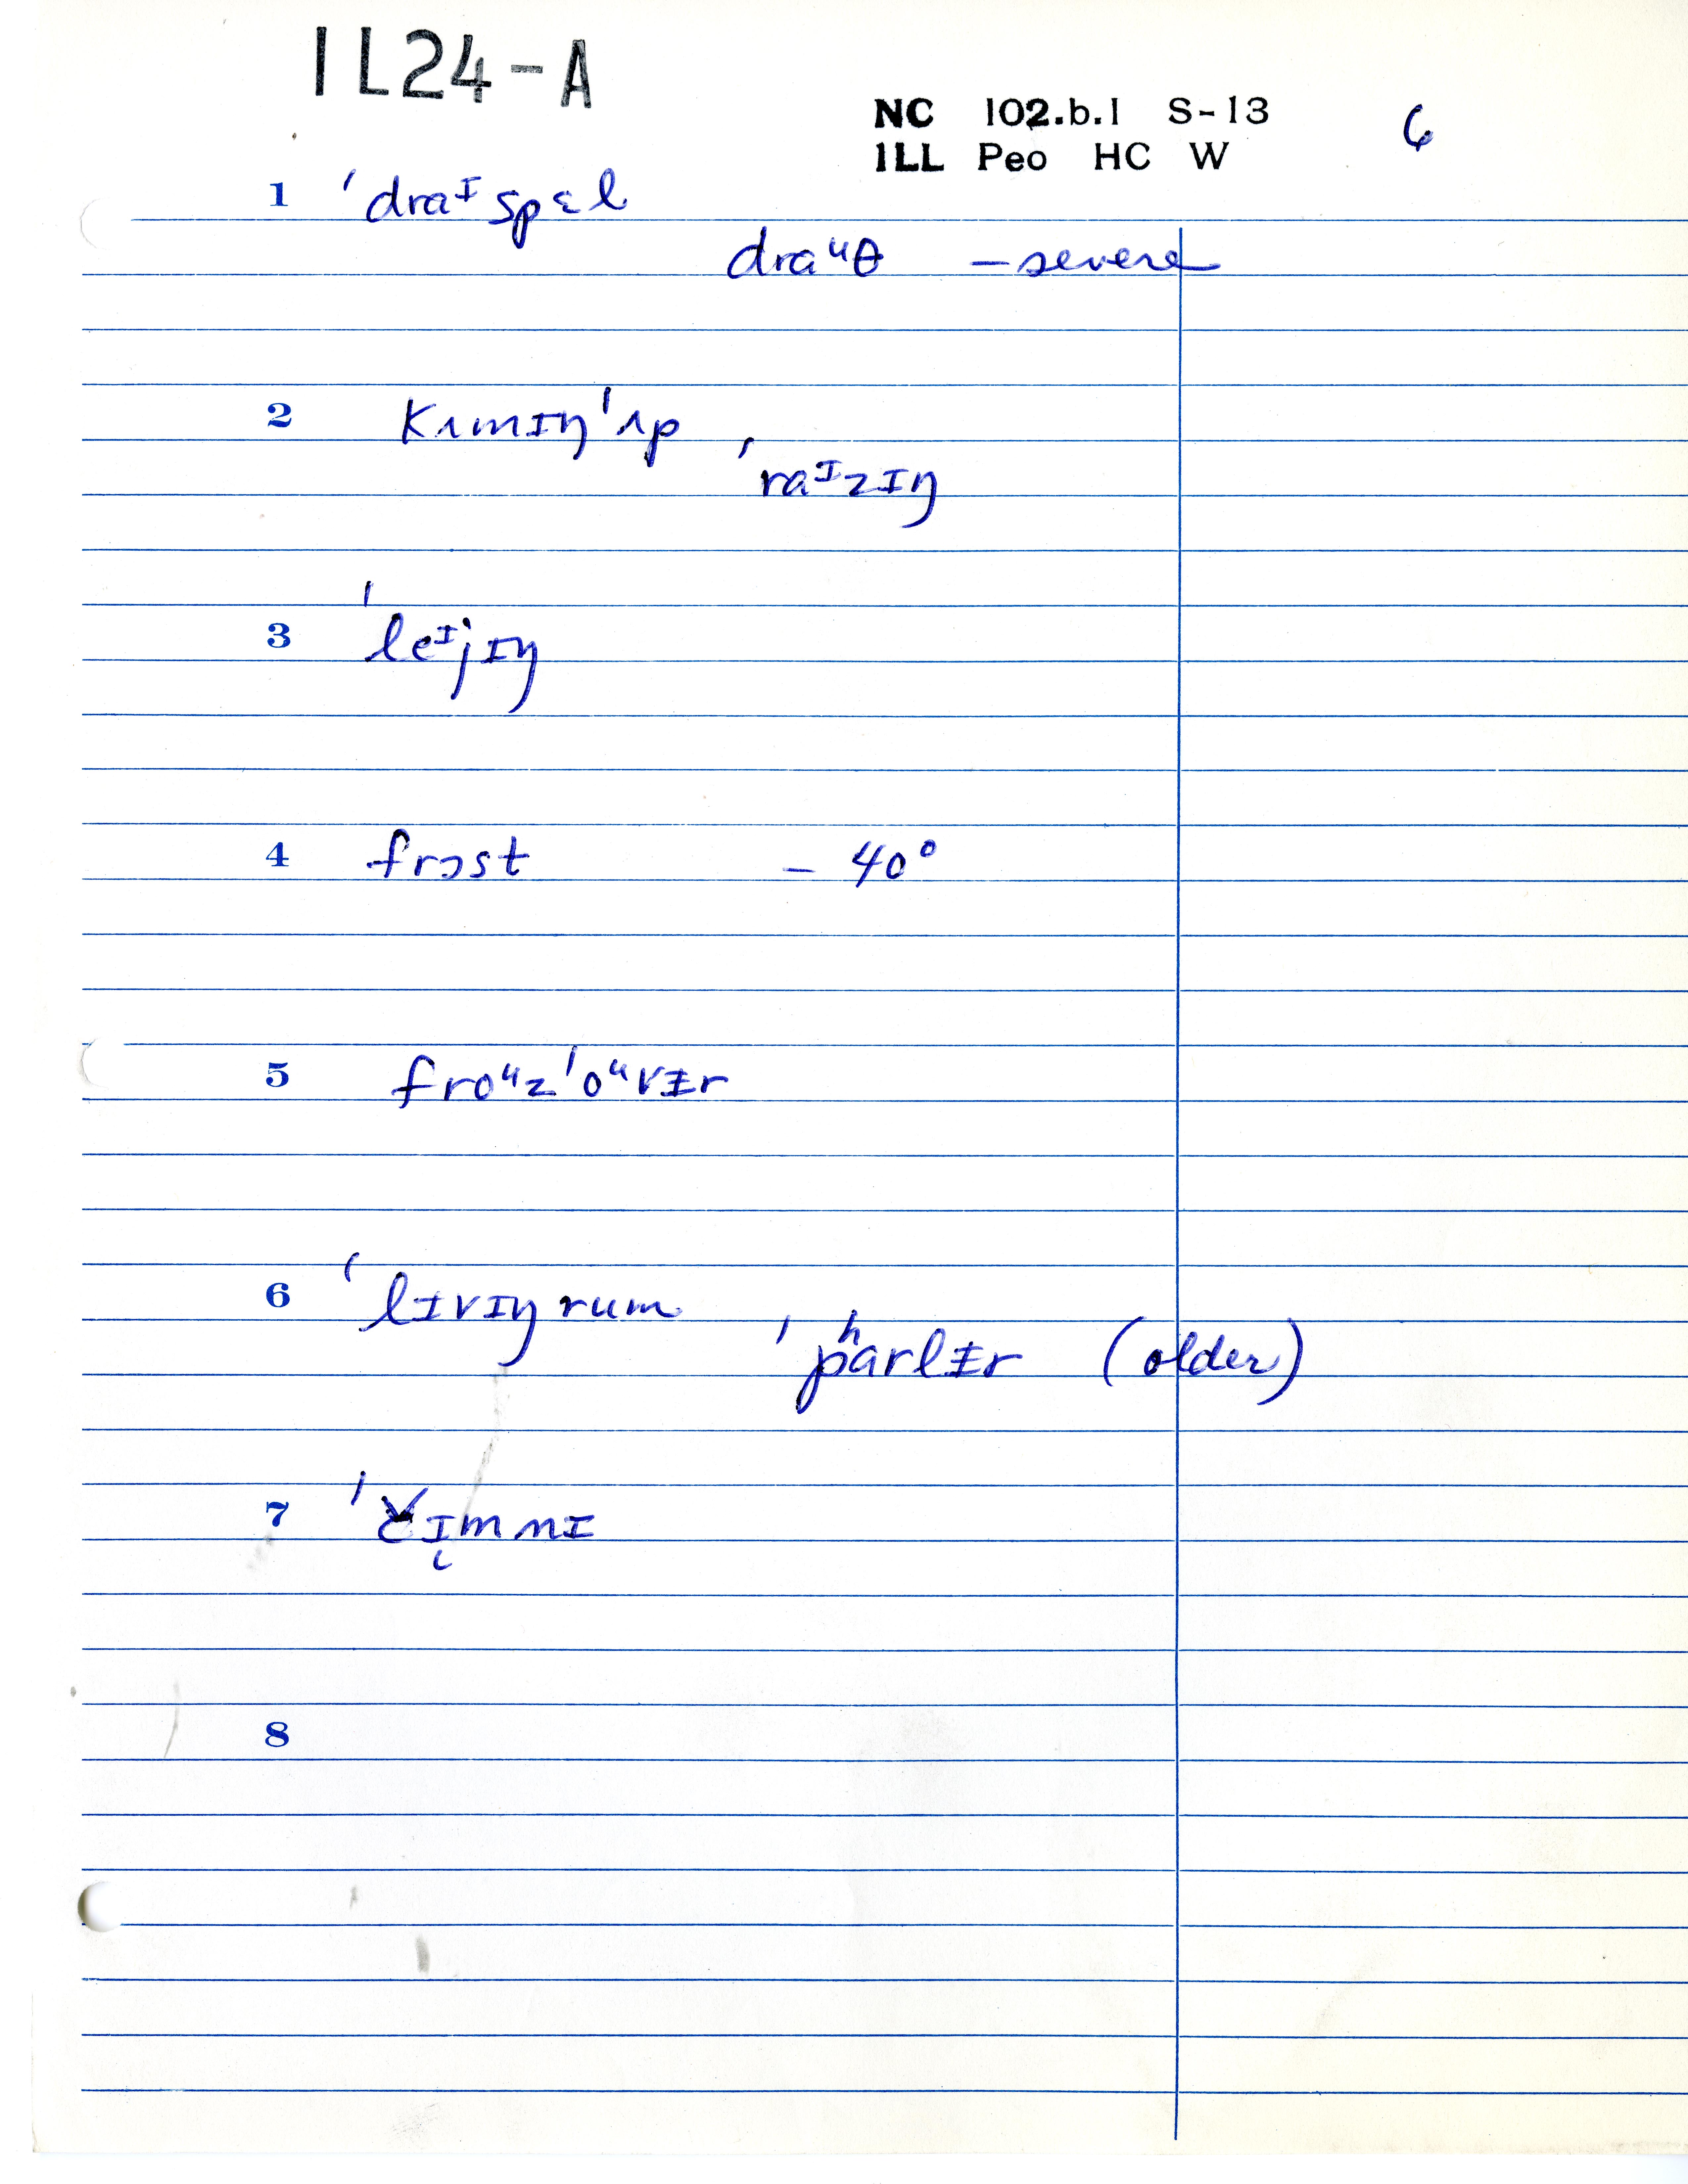 IL24-A
NC 102.b.1 S-13 6
ILL Peo HC W
1 ˈdraᴵspɛl
draᵘθ – severe
2 kʌmɪŋˈʌp
ˈraᴵzɪŋ
3 ˈleᴵjɪŋ
4 frɔst – 40°
5 froᵘzˈoᵘvɨr
6 ˈlɪvɪŋrum
ˈpʰarlɨr (older)
7
8